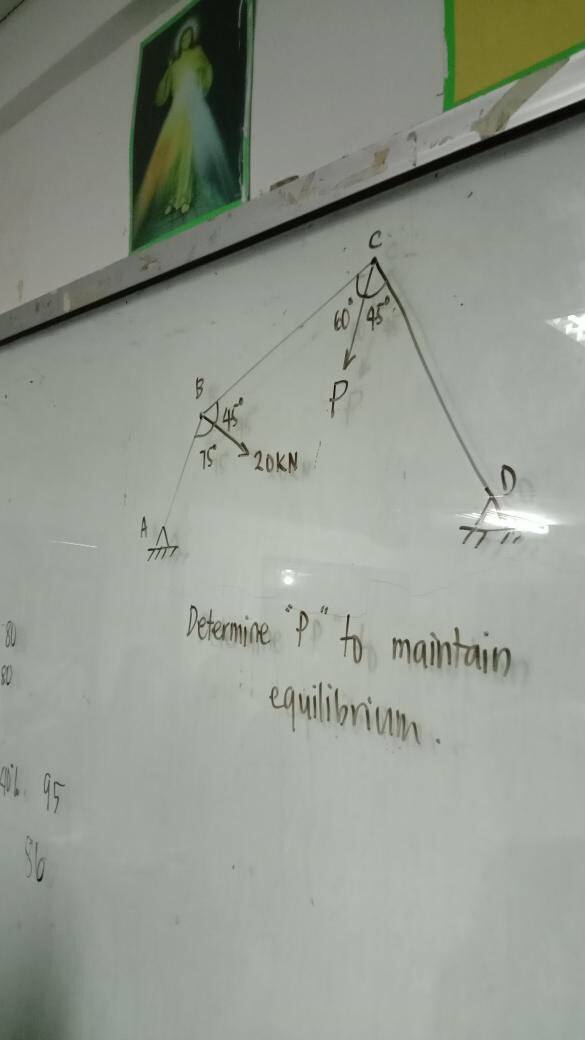 C
60° 45°
P
B
45°
75°
20KN
A
D
Determine "P" to maintain
equilibrium.
80
80
95
56